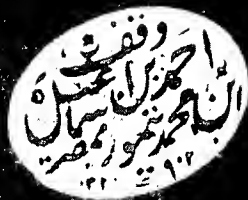 وقف
احمد بن اسماعيل
ابن محمد تيمور بمصر
٩٠٢